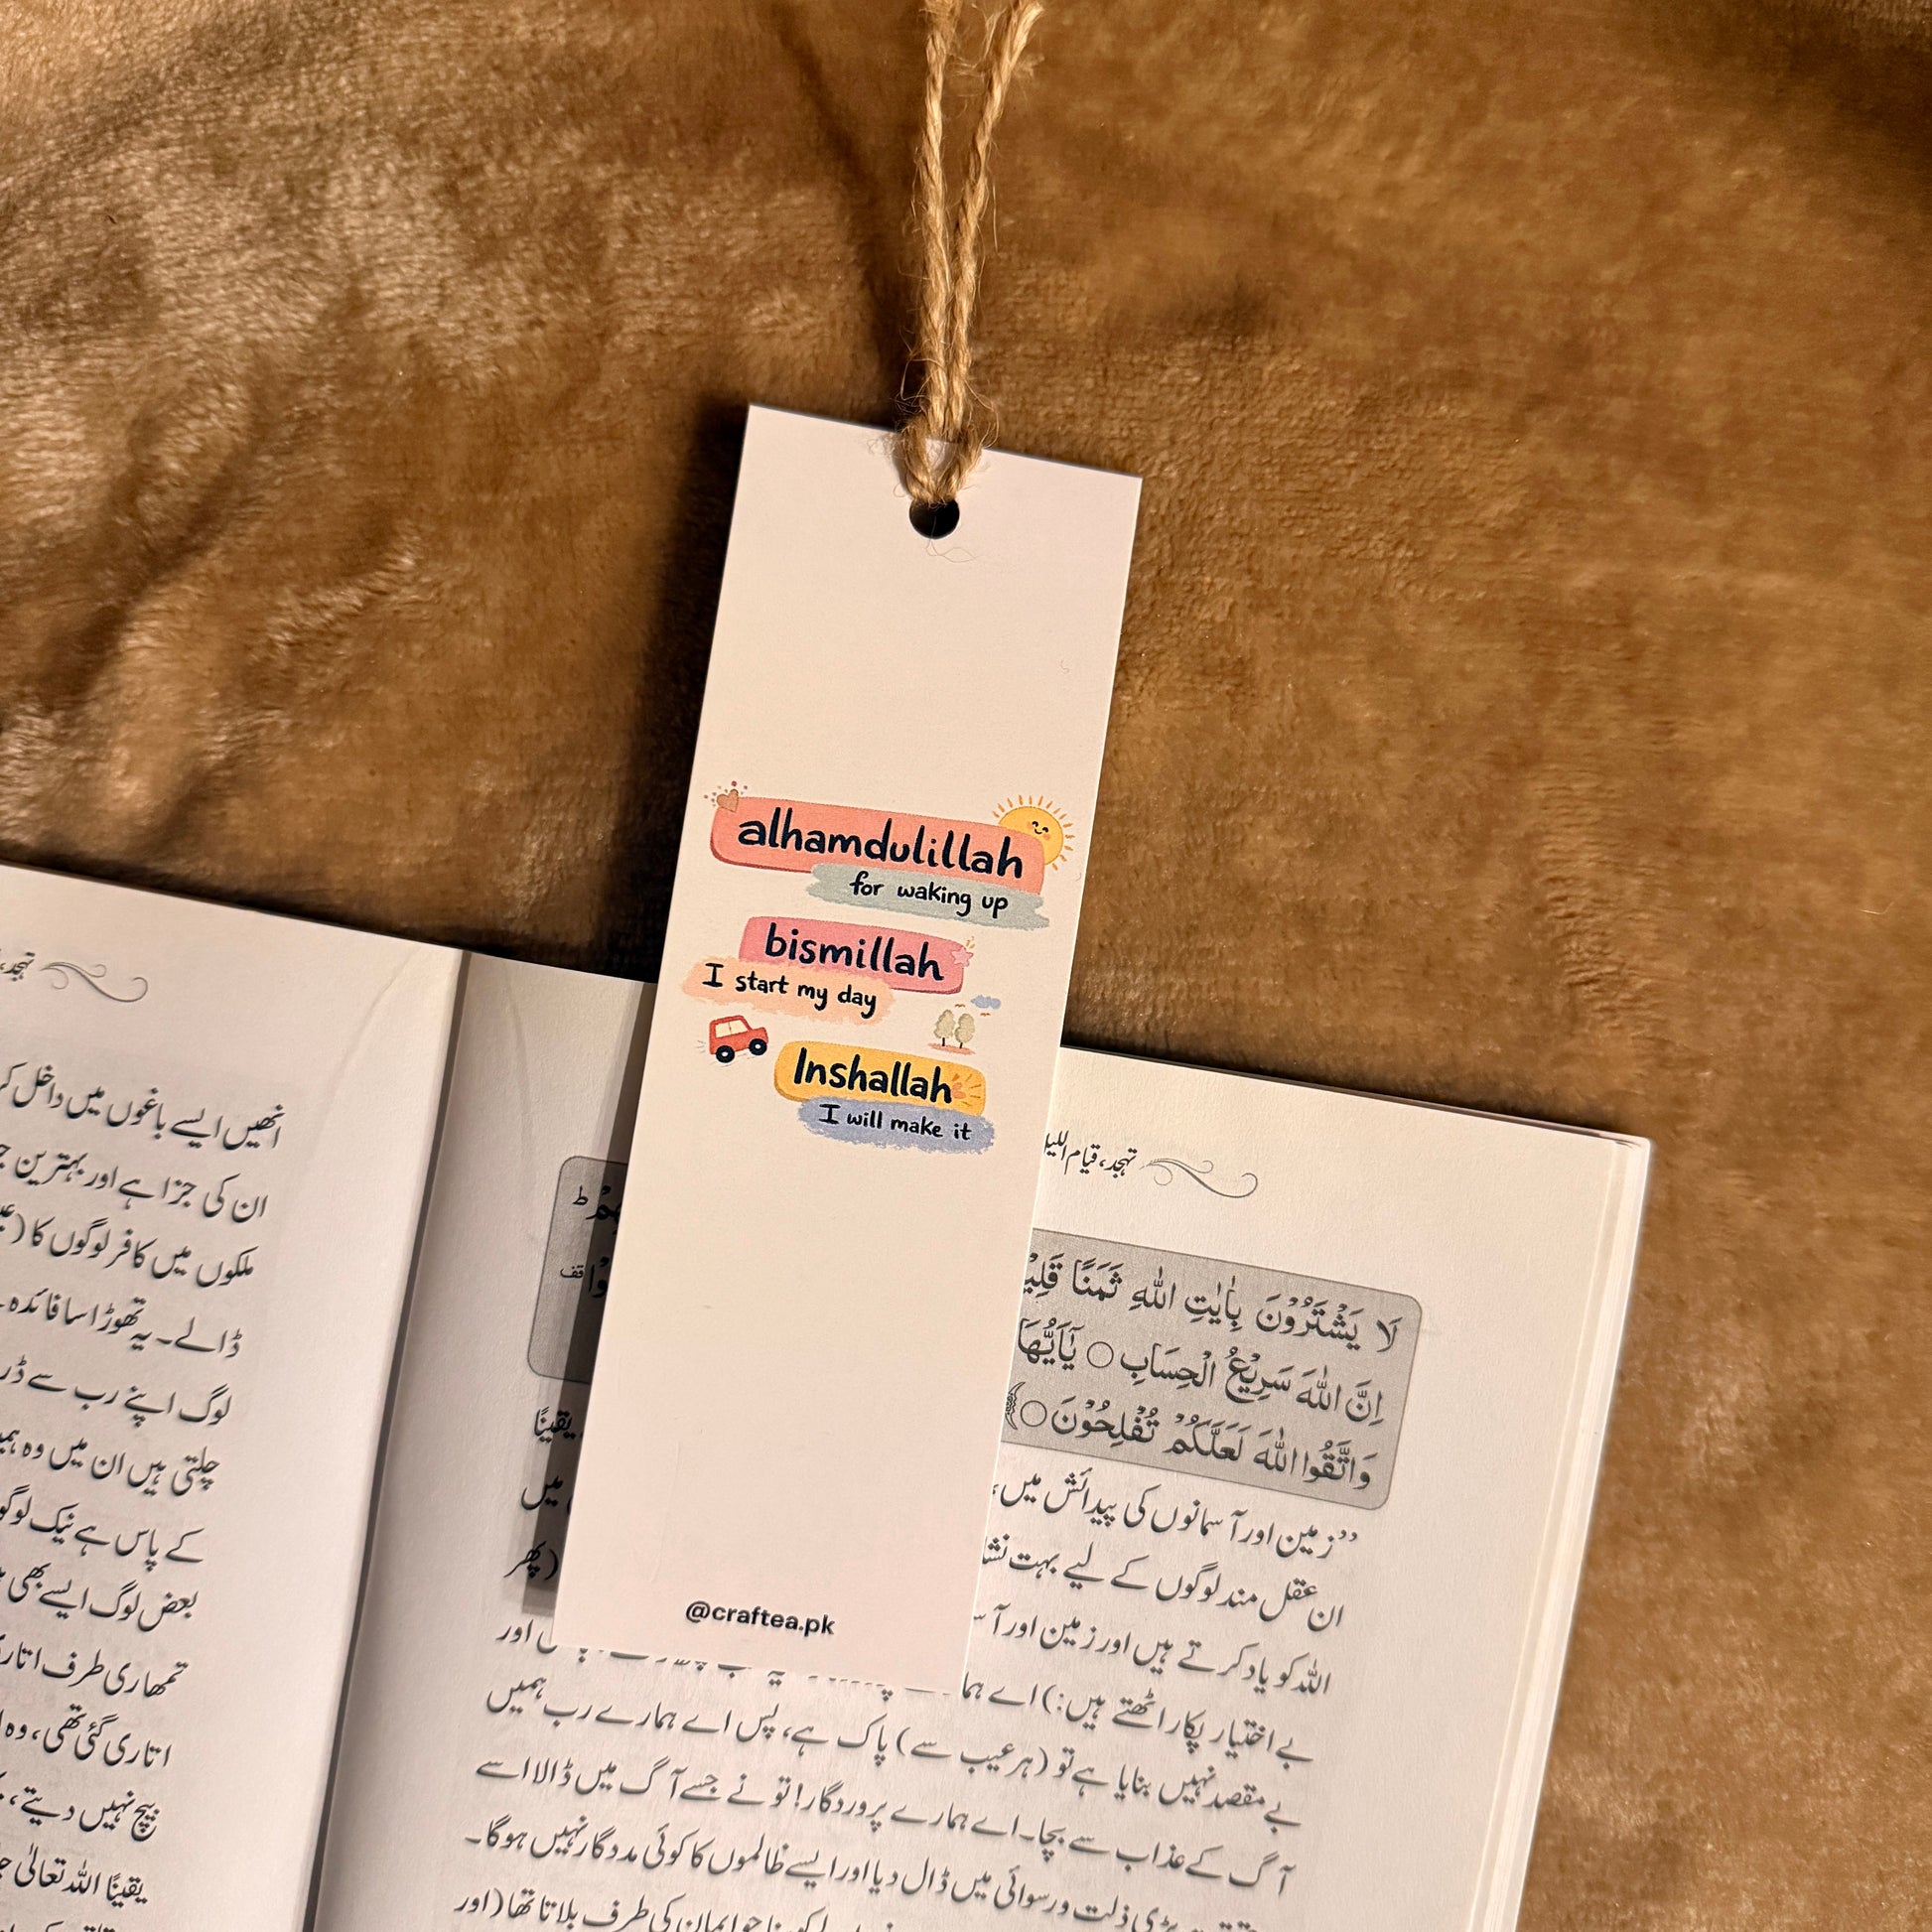 alhamdulillah
for waking up
bismillah
I start my day
Inshallah
I will make it
@craftea.pk
تہجد، قیام اللیل
لَا يَشْتَرُوْنَ بِاٰيٰتِ اللّٰهِ ثَمَنًا
اِنَّ اللّٰهَ سَرِيْعُ الْحِسَابِ ○ يٰۤاَيُّهَا
وَاتَّقُوا اللّٰهَ لَعَلَّكُمْ تُفْلِحُوْنَ ○﴾
یقینًا
’’زمین اور آسمانوں کی پیدائش میں،
میں
ان عقل مند لوگوں کے لیے بہت
(پھر
اللہ کو یاد کرتے ہیں اور زمین اور
اور
بے اختیار پکار اٹھتے ہیں:) اے
بے مقصد نہیں بنایا ہے تو (ہر عیب سے) پاک ہے، پس اے ہمارے رب ہمیں
آگ کے عذاب سے بچا۔ اے ہمارے پروردگار! تو نے جسے آگ میں ڈالا اسے
بڑی ذلت و رسوائی میں ڈال دیا اور ایسے ظالموں کا کوئی مددگار نہیں ہوگا۔
جو ایمان کی طرف بلاتا تھا (اور
تہجد،
انھیں ایسے باغوں میں داخل
ان کی جزا ہے اور بہترین
ملکوں میں کافر لوگوں کا
ڈالے۔ یہ تھوڑا سا فائدہ
لوگ اپنے رب سے
چلتی ہیں ان میں وہ
کے پاس ہے نیک
بعض لوگ ایسے بھی
تمھاری طرف
اتاری گئی تھی، وہ
بیچ نہیں دیتے،
یقینًا اللہ تعالیٰ